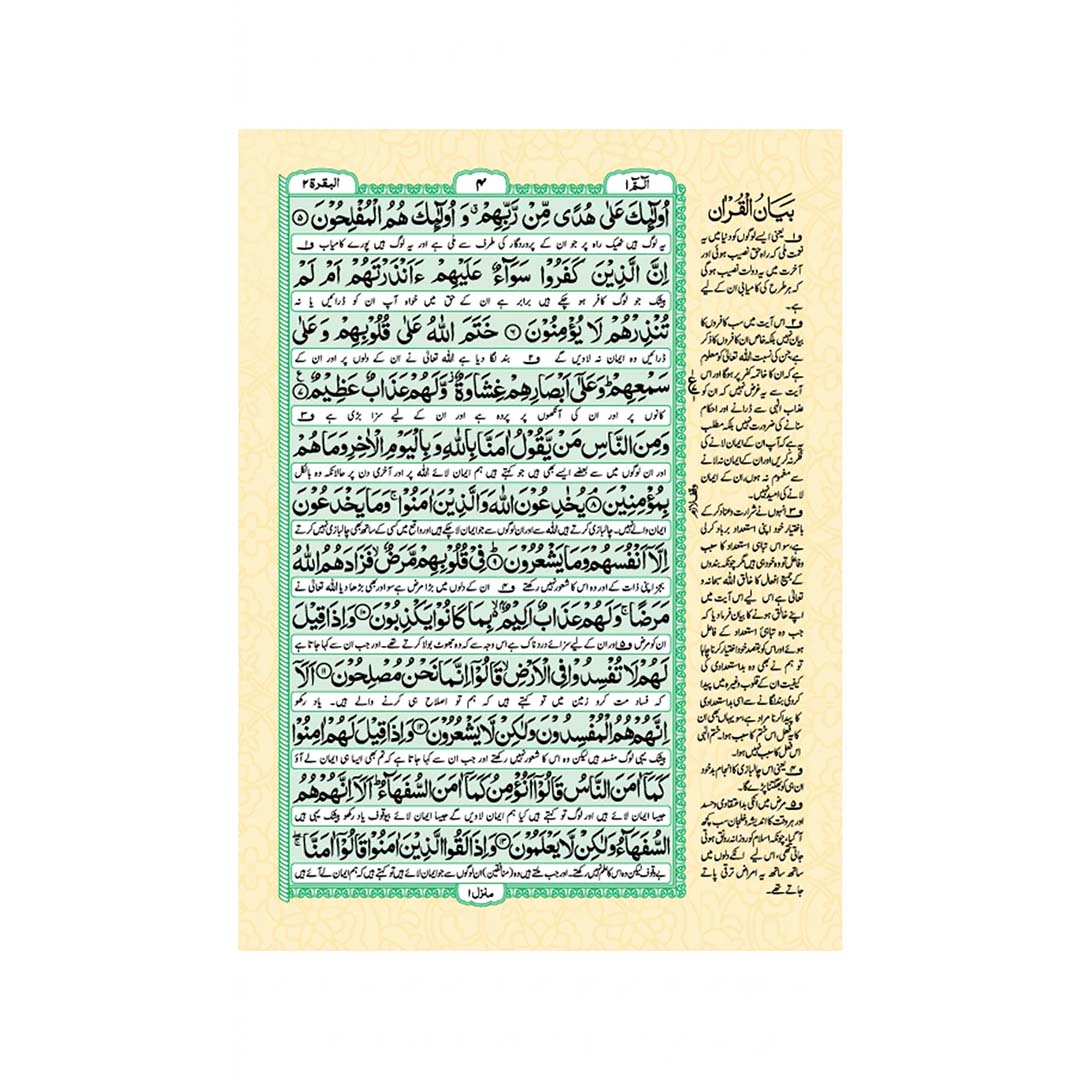 الٓمّٓ ۱
۴
البقرة ۲
اُولٰٓئِكَ عَلٰى هُدًى مِّنْ رَّبِّهِمْ ۗ وَ اُولٰٓئِكَ هُمُ الْمُفْلِحُوْنَ ۵
یہ لوگ ہیں ٹھیک راہ پر جو ان کے پروردگار کی طرف سے ملی ہے اور یہ لوگ ہیں پورے کامیاب ف۱
اِنَّ الَّذِيْنَ كَفَرُوْا سَوَآءٌ عَلَيْهِمْ ءَاَنْذَرْتَهُمْ اَمْ لَمْ
بیشک جو لوگ کافر ہو چکے ہیں برابر ہے ان کے حق میں خواہ آپ ان کو ڈرائیں یا نہ
تُنْذِرْهُمْ لَا يُؤْمِنُوْنَ ۶ خَتَمَ اللّٰهُ عَلٰى قُلُوْبِهِمْ وَعَلٰى
ڈرائیں وہ ایمان نہ لاویں گے ف۲ بند لگا دیا ہے اللہ تعالیٰ نے ان کے دلوں پر اور ان کے
سَمْعِهِمْ ؕ وَعَلٰٓى اَبْصَارِهِمْ غِشَاوَةٌ ز وَّلَهُمْ عَذَابٌ عَظِيْمٌ ۷
کانوں پر اور ان کی آنکھوں پر پردہ ہے اور ان کے لیے سزا بڑی ہے ف۳
وَمِنَ النَّاسِ مَنْ يَّقُوْلُ اٰمَنَّا بِاللّٰهِ وَ بِالْيَوْمِ الْاٰخِرِ وَمَا هُمْ
اور ان لوگوں میں سے بعضے ایسے بھی ہیں جو کہتے ہیں ہم ایمان لائے اللہ پر اور آخری دن پر حالانکہ وہ بالکل
بِمُؤْمِنِيْنَ ۘ ۸ يُخٰدِعُوْنَ اللّٰهَ وَالَّذِيْنَ اٰمَنُوْا ۚ وَمَا يَخْدَعُوْنَ
ایمان والے نہیں۔ چالبازی کرتے ہیں اللہ سے اور ان لوگوں سے جو ایمان لا چکے ہیں اور واقع میں کسی کے ساتھ بھی چالبازی نہیں کرتے
اِلَّآ اَنْفُسَهُمْ وَمَا يَشْعُرُوْنَ ۹ فِيْ قُلُوْبِهِمْ مَّرَضٌ ۙ فَزَادَهُمُ اللّٰهُ
بجز اپنی ذات کے اور وہ اس کا شعور نہیں رکھتے ف۴ ان کے دلوں میں بڑا مرض ہے سو اور بھی بڑھا دیا اللہ تعالیٰ نے
مَرَضًا ۚ وَلَهُمْ عَذَابٌ اَلِيْمٌ ۢ ۙ بِمَا كَانُوْا يَكْذِبُوْنَ ۱۰ وَاِذَا قِيْلَ
ان کو مرض ف۵ اور ان کے لیے سزائے دردناک ہے اس وجہ سے کہ وہ جھوٹ بولا کرتے تھے۔ اور جب ان سے کہا جاتا ہے
لَهُمْ لَا تُفْسِدُوْا فِي الْاَرْضِ ۙ قَالُوْٓا اِنَّمَا نَحْنُ مُصْلِحُوْنَ ۱۱ اَلَآ
کہ فساد مت کرو زمین میں تو کہتے ہیں کہ ہم تو اصلاح ہی کرنے والے ہیں۔ یاد رکھو
اِنَّهُمْ هُمُ الْمُفْسِدُوْنَ وَلٰكِنْ لَّا يَشْعُرُوْنَ ۱۲ وَاِذَا قِيْلَ لَهُمْ اٰمِنُوْا
بیشک یہی لوگ مفسد ہیں لیکن وہ اس کا شعور نہیں رکھتے اور جب ان سے کہا جاتا ہے کہ تم بھی ایسا ہی ایمان لے آؤ
كَمَآ اٰمَنَ النَّاسُ قَالُوْٓا اَنُؤْمِنُ كَمَآ اٰمَنَ السُّفَهَآءُ ؕ اَلَآ اِنَّهُمْ هُمُ
جیسا ایمان لائے ہیں اور لوگ تو کہتے ہیں کیا ہم ایمان لاویں گے جیسا ایمان لائے بیوقوف یاد رکھو بیشک یہی ہیں
السُّفَهَآءُ وَلٰكِنْ لَّا يَعْلَمُوْنَ ۱۳ وَاِذَا لَقُوا الَّذِيْنَ اٰمَنُوْا قَالُوْٓا اٰمَنَّا ۖۚ
بے وقوف لیکن وہ اس کا علم نہیں رکھتے۔ اور جب ملتے ہیں وہ (منافقین) ان لوگوں سے جو ایمان لائے ہیں تو کہتے ہیں کہ ہم ایمان لے آئے ہیں
منزل ۱
بَيَانُ الْقُرْاٰن
ف۱ یعنی ایسے لوگوں کو دنیا میں یہ
نعمت ملی کہ راہ حق نصیب ہوئی اور
آخرت میں یہ دولت نصیب ہوگی
کہ ہر طرح کی کامیابی ان کے لیے
ہے۔
ف۲ اس آیت میں سب کافروں کا
بیان نہیں بلکہ خاص ان کافروں کا ذکر
ہے جن کی نسبت اللہ تعالیٰ کو معلوم
ہے کہ ان کا خاتمہ کفر پر ہوگا اور اس
آیت سے یہ غرض نہیں کہ ان کو
عذاب الٰہی سے ڈرانے اور احکام
سنانے کی ضرورت نہیں بلکہ مطلب
یہ ہے کہ آپ ان کے ایمان لانے کی
فکر نہ کریں اور ان کے ایمان نہ لانے
سے مغموم نہ ہوں، ان کے ایمان
لانے کی امید نہیں۔
وقف لازم
ف۳ انہوں نے شرارت و عناد کر کے
باختیار خود اپنی استعداد برباد کر لی
ہے، سو اس تباہی استعداد کا سبب
و فاعل تو وہ خود ہی ہیں مگر چونکہ بندوں
کے جمیع افعال کا خالق اللہ سبحانہ و
تعالیٰ ہے اس لیے اس آیت میں
اپنے خالق ہونے کا بیان فرما دیا کہ
جب وہ تباہی استعداد کے فاعل
ہوئے اور اس کو بقصد خود اختیار کرنا چاہا
تو ہم نے بھی وہ بد استعدادی کی
کیفیت ان کے قلوب وغیرہ میں پیدا
کر دی، بند لگانے سے اسی بد استعدادی
کا پیدا کرنا مراد ہے، سو یہاں بھی ان
کا یہ فعل اس ختم کا سبب ہوا۔ ختم الٰہی
اس فعل کا سبب نہیں ہوا۔
ف۴ یعنی اس چالبازی کا انجام بد خود
ان ہی کو بھگتنا پڑے گا۔
ف۵ مرض میں انکی بد اعتقادی و حسد
اور ہر وقت کا اندیشہ و خلجان سب کچھ
آ گیا، چونکہ اسلام کو روزانہ رونق ہوتی
جاتی تھی، اس لیے انکے دلوں میں
ساتھ ساتھ یہ امراض ترقی پاتے
جاتے تھے۔